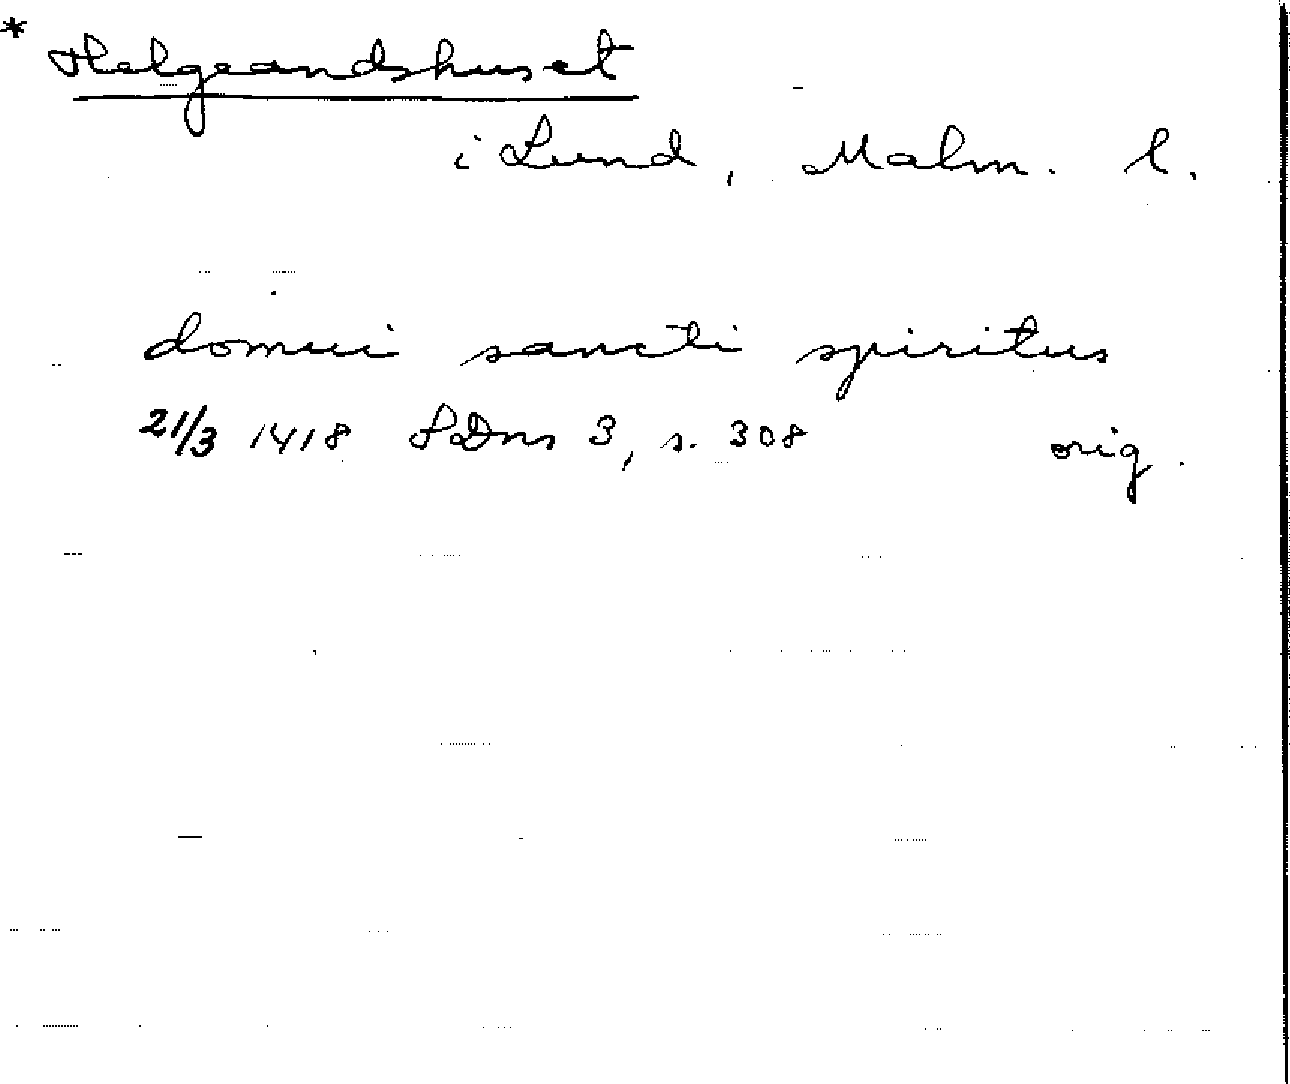 * Helgeandshuset
i Lund, Malm. l.
domui sancti spiritus
21/3 1418 SDns 3, s. 308 orig.